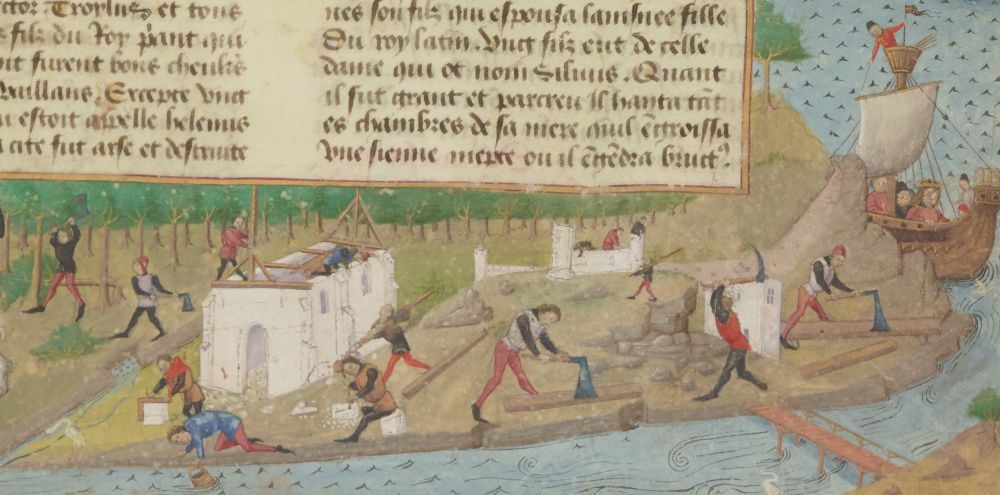 ctor Troylus et tous
filz du Roy pant qui
furent bons cheulrs
vaillans. Excepte vng
estoit apelle helenus
cite fut arse et destruite
nes son filz qui espousa lainsnee fille
Du roy latin. Vng filz eut de celle
dame qui ot nom Siluius. Quant
il fut grant et parcreu il hanta tãt
es chambres de sa mere quil ẽgroissa
vne sienne niepce ou il ẽgẽdra brutꝯ.